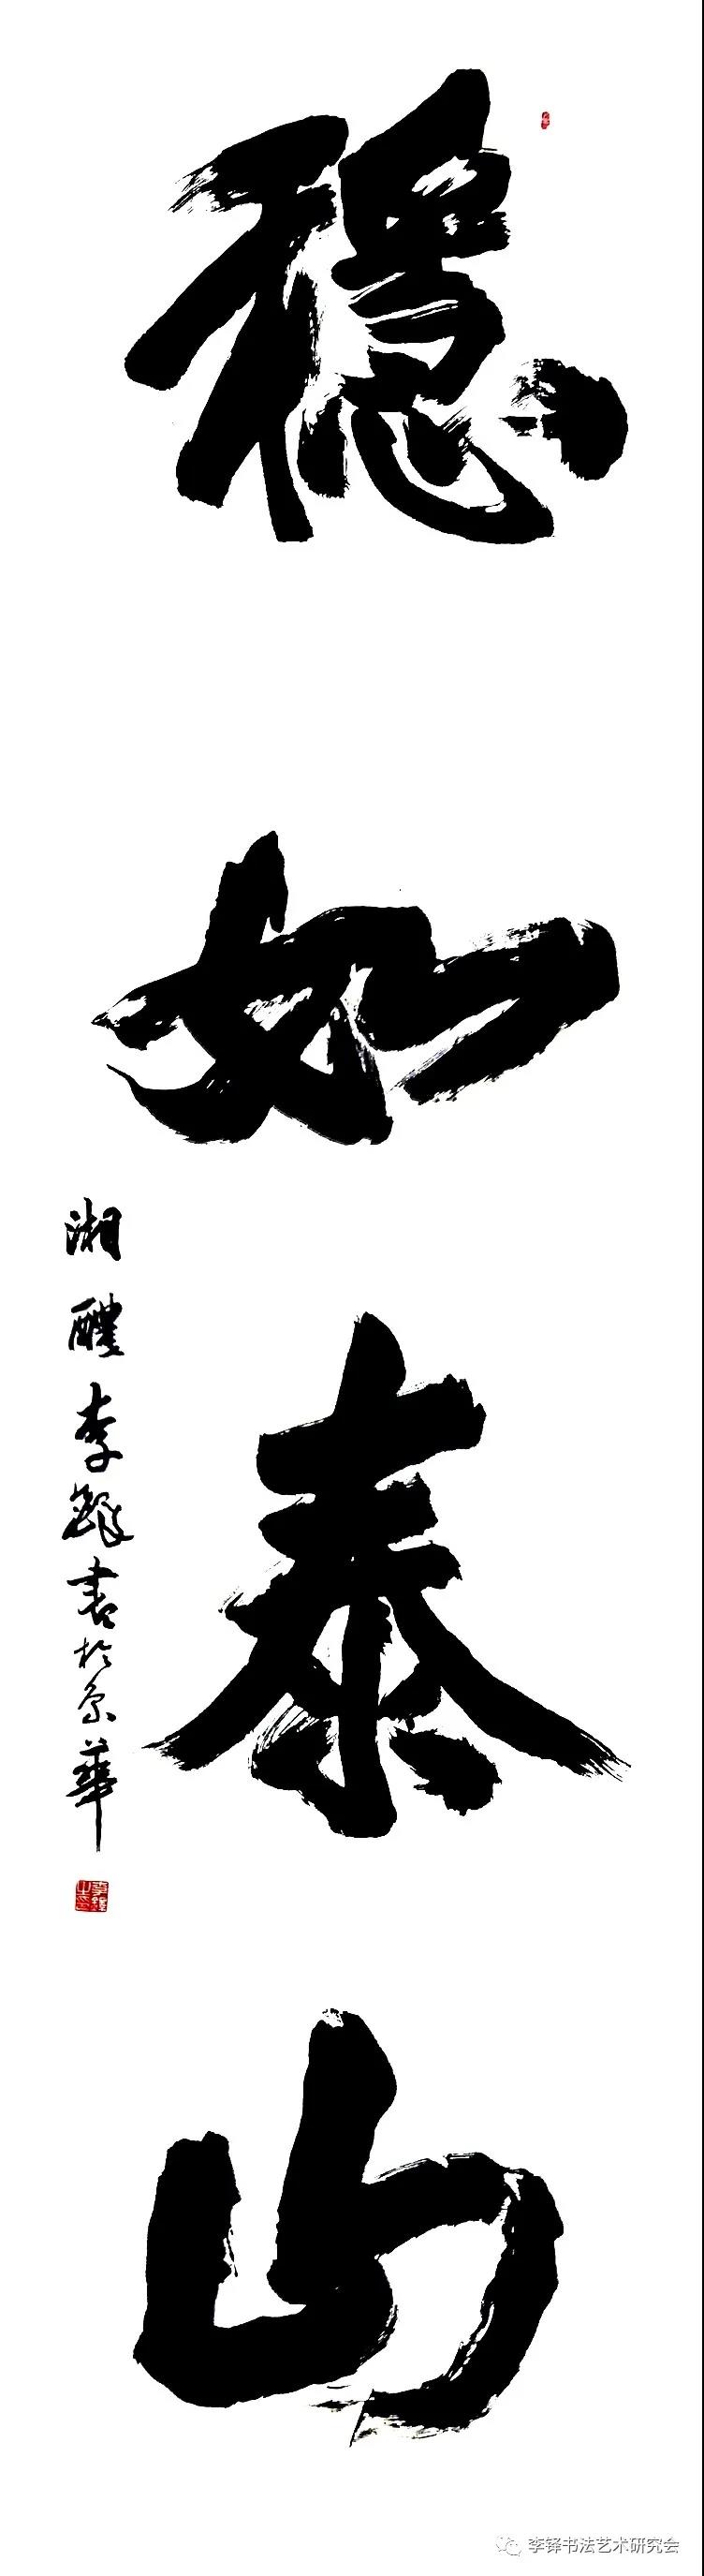 穩如泰山
湘醴李鐸書於京華
李鐸之印
李铎书法艺术研究会